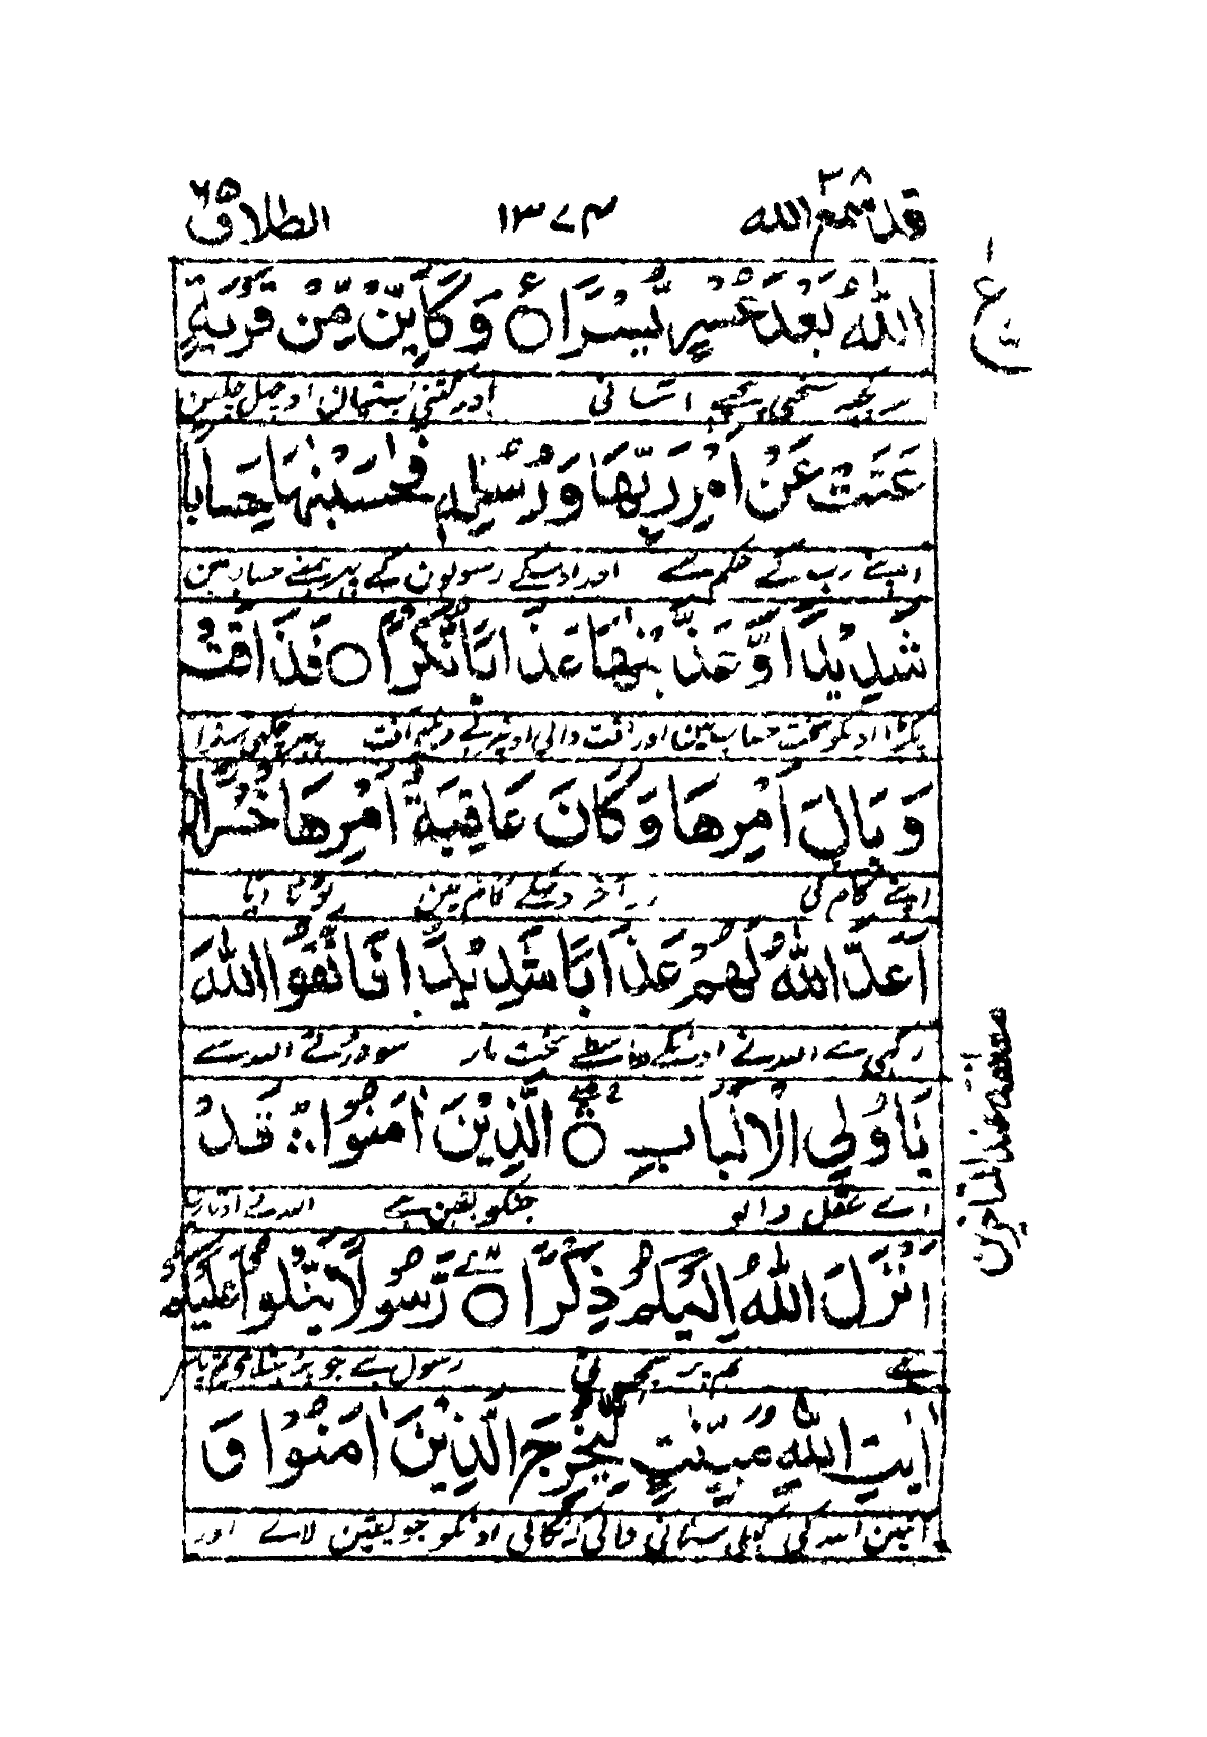 قد سمع الله ٢٨ ١٣٧٤ الطلاق ٦٥
اللّٰهُ بَعْدَ عُسْرٍ يُّسْرًا ○ ع وَكَاَيِّنْ مِّنْ قَرْيَةٍ
سختی پیچھے اور کتنی بستیاں اوچھل چلین
عَتَتْ عَنْ اَمْرِ رَبِّهَا وَرُسُلِهٖ فَحَاسَبْنٰهَا حِسَابًا
اپنے رب کے حکم سے اور اوسکے رسولون کے پھر ہمنے حساب مین
شَدِيْدًا وَّعَذَّبْنٰهَا عَذَابًا نُّكْرًا ○ فَذَاقَتْ
پکڑا اونکو سخت حساب مین اور آفت ڈالی اونپر آفت پھر چکھی سزا
وَبَالَ اَمْرِهَا وَكَانَ عَاقِبَةُ اَمْرِهَا خُسْرًا
اپنے کام کی اور آخر اونکے کام مین ٹوٹا آیا
اَعَدَّ اللّٰهُ لَهُمْ عَذَابًا شَدِيْدًا فَاتَّقُوا اللّٰهَ
رکھی ہے اللہ نے اونکے واسطے سخت مار سو ڈرتے اللہ سے
يٰاُولِي الْاَلْبَابِ ○ الَّذِيْنَ اٰمَنُوْا ∴ قَدْ
اے عقل والو جنکو یقین ہے اللہ نے اوتاری
اَنْزَلَ اللّٰهُ اِلَيْكُمْ ذِكْرًا ○ رَّسُوْلًا يَّتْلُوْا عَلَيْكُمْ
ہے تم پر سمجھوتی رسول ہے جو پڑھتا ہے تم پاس
اٰيٰتِ اللّٰهِ مُبَيِّنٰتٍ لِّيُخْرِجَ الَّذِيْنَ اٰمَنُوْا وَ
آیتین اللہ کی کھلی سنانی والی کہ نکالی اونکو جو یقین لاے اور
معانقه عند المتاخرين